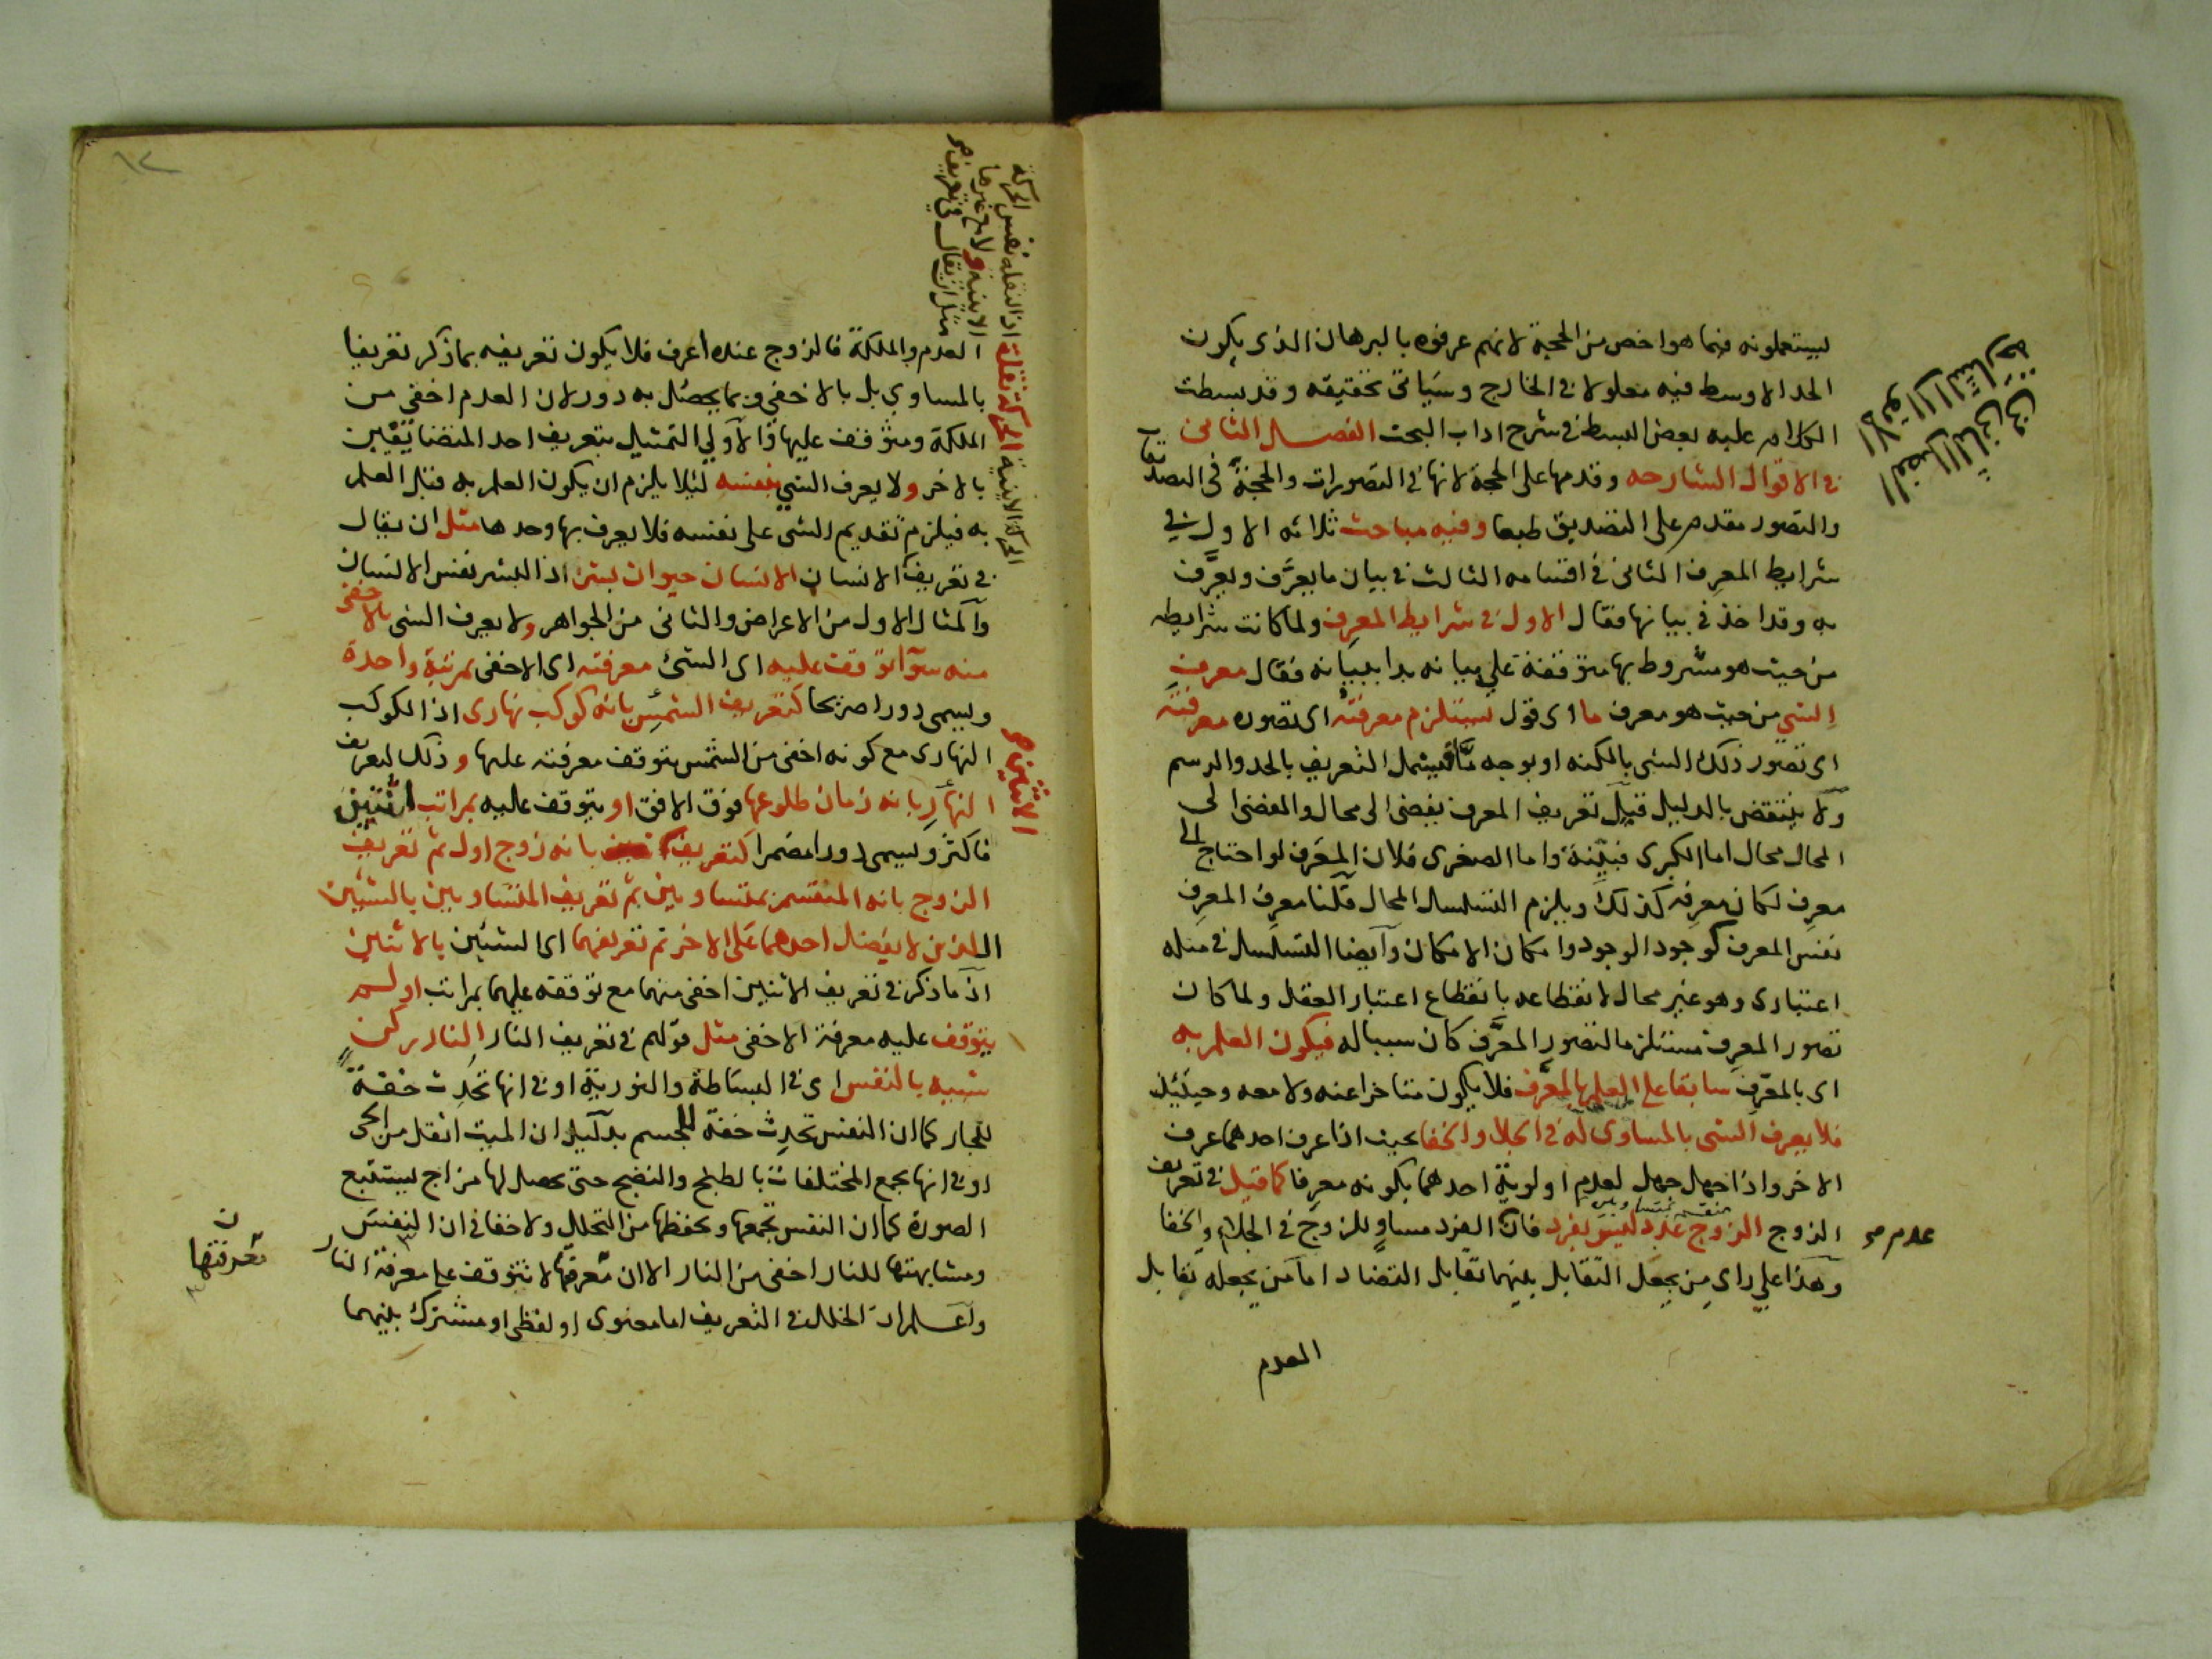 ليستعملونه فيما هو اخص من الحجة لانهم عرفوه بالبرهان الذى يكون
الحد الاوسط فيه معلولا فى الخارج وسياتى تحقيقه وقد بسطت
الكلام عليه بعض البسط فى شرح اداب البحث الفصل الثانى
فى الاقوال الشارحه وقدمها على الحجة لانها فى التصورات والحجة فى التصديقات
والتصور مقدم على التصديق طبعا وفيه مباحث ثلاثه الاول فى
شرايط المعرف الثانى فى اقسامه الثالث فى بيان ما يعرَّف ويعرَّف
به وقد اخذ فى بيانها فقال الاول فى شرايط المعرف ولما كانت شرايطه
من حيث هو مشروط بها متوقفة على بيانه بدا ببيانه فقال معرف
الشي من حيث هو معرف ما اى قول يستلزم معرفته اى تصوره معرفته
اى تصور ذلك الشى بالكنه او بوجه ما ليشمل التعريف بالحد والرسم
ولا ينتقض بالدليل قيل تعريف المعرف يفضى الى محال والمفضى الى
المحال محال اما الكبرى فبيّنة واما الصغرى فلان المعرف لو احتاج الى
معرف لكان معرفه كذلك ويلزم التسلسل المحال قلنا معرف المعرف
نفس المعرف كوجود الوجود وامكان الامكان وايضا التسلسل فى مثله
اعتبارى وهو غير محال لانقطاعه بانقطاع اعتبار العقل ولما كان
تصور المعرف مستلزما لتصور المعرَّف كان سببا له فيكون العلم به
اى بالمعرّف سابقا على العلم بالمعرَّف فلا يكون متاخرا عنه ولا معه وحينئذ
فلا يعرف الشى بالمساوى له فى الجلا والخفا بحيث اذا عرف احدهما عرف
الاخر واذا جهل جهل لعدم اولوية احدهما بكونه معرفا كما قيل فى تعريف
الزوج الزوج عدد ليس بفرد فان الفرد مساوٍ للزوج فى الجلاء والخفا
وهذا على راى من يجعل التقابل بينهما تقابل التضاد اما من يجعله تقابل
العدم
الفصل الثانى فى
الاقوال الشارحة
منقسم بمتساويين
عدم صح
العدم والملكة فالزوج عنده اعرف فلا يكون تعريفه بما ذكر تعريفا
بالمساوي بل بالاخفى وبما يحصل به دور لان العدم اخفى من
الملكة ومتوقف عليها والاولى التمثيل بتعريف احد المتضايفين
بالاخر ولا يعرف الشي بنفسه ليلا يلزم ان يكون العلم به قبل العلم
به فيلزم تقديم الشى على نفسه فلا يعرف بها وحدها مثل ان يقال
فى تعريف الانسان الانسان حيوان بشر اذ البشر نفس الانسان
والمثال الاول من الاعراض والثانى من الجواهر ولا يعرف الشى بالاخفى
منه سوآ توقف عليه اى الشئ معرفته اى الاخفى بمرتبة واحدة
ويسمى دورا صريحا كتعريف الشمس بانه كوكب نهارى اذ الكوكب
النهارى مع كونه اخفى من الشمس يتوقف معرفته عليها وذلك لتعريف
النهار بانه زمان طلوعها فوق الافق او يتوقف عليه بمراتب اثنتين
فاكثر ويسمى دورا مضمرا كتعريف بانه زوج اول ثم تعريف
الزوج بانه المنقسم بمتساويين ثم تعريف المتساويين بالشيئين
اللذين لا يفضل احدهما على الاخر ثم تعريفهما اى الشيئين بالاثنين
اذ ما ذكر فى تعريف الاثنين اخفى منهما مع توقفه عليهما بمراتب او لم
يتوقف عليه معرفة الاخفى مثل قولهم فى تعريف النار النار ركن
شبيه بالنفس اى فى البساطة والنورية او فى انها تحدث خفة
للجار كما ان النفس تحدث خفة للجسم بدليل ان الميت اثقل من الحى
او فى انها تجمع المختلفات بالطبخ والنضج حتى يحصل لها مزاج ليستتبع
الصورة كما ان النفس تجمعها وتحفظها من التحلل ولا خفا فى ان النفس
ومشابهتها للنار اخفى من النار الا ان معرفتها لا تتوقف على معرفة النار
واعلم ان الخلل فى التعريف اما معنوى او لفظى او مشترك بينهما
الحركة الاينية الحركة نقلة اذ النقله نفس الحركة
الاينية ولا مع غيرها
مثل ان يقال فى تعريف صح
الاثنين صح
ن
معرفتها
١٢